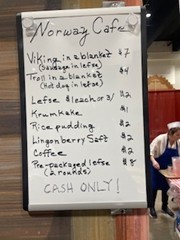 Norway Cafe
Viking in a blanket $7
(Sausage in lefse)
Troll in a blanket $4
(Hot dog in lefse)
Lefse $1 each or 3/ $2
Krumkake $1
Rice pudding $2
Lingonberry Saft $2
Coffee $2
Pre-packaged lefse $8
(2 rounds)
CASH ONLY!